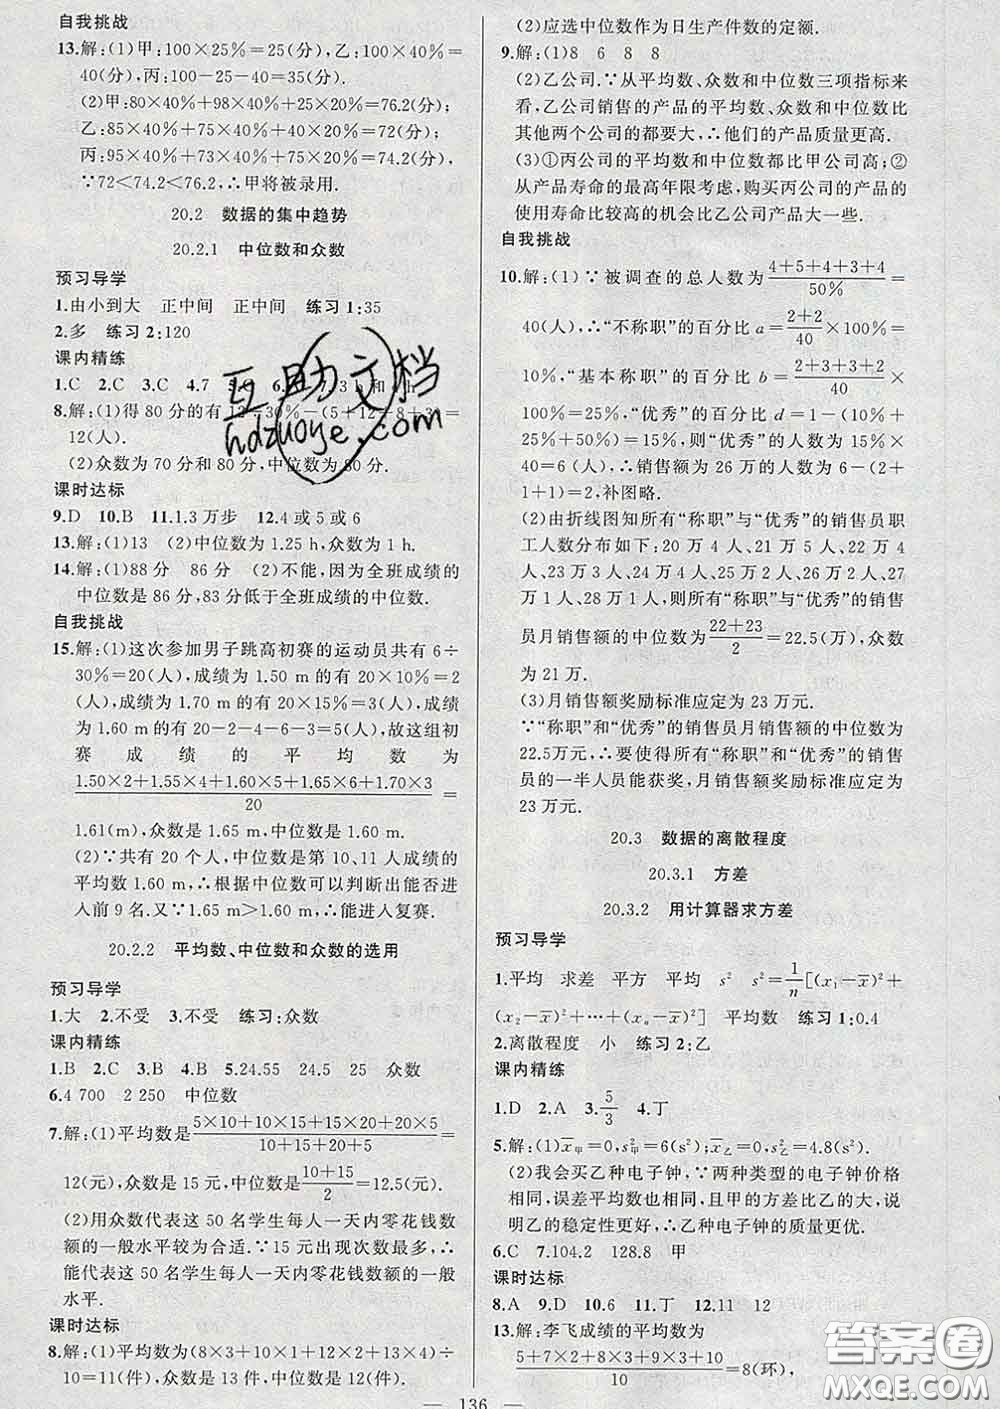 自我挑战
13.解:(1)甲:100×25%=25(分),乙:100×40%=
40(分),丙:100-25-40=35(分).
(2)甲:80×40%+98×40%+25×20%=76.2(分);
乙:85×40%+75×40%+40×20%=72(分);
丙:95×40%+73×40%+35×20%=74.2(分).
∵72<74.2<76.2,∴甲将被录用.
20.2 数据的集中趋势
20.2.1 中位数和众数
预习导学
1.由小到大 正中间 正中间 练习1:35
2.多 练习2:120
课内精练
1.C 2.C 3.C 4.7 3 h和
8.解:(1)得80分的有12÷30%-(5+12+8+3)=
12(人).
(2)众数为70分和80分,中位数为80分.
课时达标
9.D 10.B 11.1.3万步 12.4或5或6
13.解:(1)13 (2)中位数为1.25 h,众数为1 h.
14.解:(1)88分 86分 (2)不能,因为全班成绩的
中位数是86分,83分低于全班成绩的中位数.
自我挑战
15.解:(1)这次参加男子跳高初赛的运动员共有6÷
30%=20(人),成绩为1.50 m的有20×10%=2
(人),成绩为1.70 m的有20×15%=3(人),成绩为
1.60 m的有20-2-4-6-3=5(人),故这组初
赛成绩的平均数为
1.50×2+1.55×4+1.60×5+1.65×6+1.70×3/20=
1.61(m),众数是1.65 m,中位数是1.60 m.
(2)∵共有20个人,中位数是第10、11人成绩的
平均数1.60 m,∴根据中位数可以判断出能否进
入前9名.又∵1.65 m>1.60 m,∴能进入复赛.
20.2.2 平均数、中位数和众数的选用
预习导学
1.大 2.不受 3.不受 练习:众数
课内精练
1.B 2.C 3.B 4.B 5.24.55 24.5 25 众数
6.4 700 2 250 中位数
7.解:(1)平均数是5×10+10×15+15×20+20×5/10+15+20+5=
12(元),众数是15元,中位数是10+15/2=12.5(元).
(2)用众数代表这50名学生每人一天内零花钱数
额的一般水平较为合适.∵15元出现次数最多,∴
能代表这50名学生每人一天内零花钱数额的一般
水平.
课时达标
8.解:(1)平均数为(8×3+10×1+12×2+13×4)÷
10=11(件),众数是13(件),中位数是12(件).
(2)应选中位数作为日生产件数的定额.
9.解:(1)8 6 8 8
(2)乙公司.∵从平均数、众数和中位数三项指标来
看,乙公司销售的产品的平均数、众数和中位数比
其他两个公司的都要大,∴他们的产品质量更高.
(3)①丙公司的平均数和中位数都比甲公司高;②
从产品寿命的最高年限考虑,购买丙公司的产品的
使用寿命比较高的机会比乙公司产品大一些.
自我挑战
10.解:(1)∵被调查的总人数为4+5+4+3+4/50%=
40(人),∴“不称职”的百分比a=2+2/40×100%=
10%,“基本称职”的百分比b=2+3+3+2/40×
100%=25%,“优秀”的百分比d=1-(10%+
25%+50%)=15%,则“优秀”的人数为15%×
40=6(人),∴销售额为26万的人数为6-(2+
1+1)=2(人),补图略.
(2)由折线图知所有“称职”与“优秀”的销售员职
工人数分布如下:20万4人、21万5人、22万4人、
23万3人、24万4人、25万2人、26万2人、27万
1人、28万1人,则所有“称职”与“优秀”的销售
员月销售额的中位数为22+23/2=22.5(万),众数
为21万.
(3)月销售额奖励标准应定为23万元.
∵“称职”和“优秀”的销售员月销售额的中位数为
22.5万元,∴要使得所有“称职”和“优秀”的销售
员的一半人员能获奖,月销售额奖励标准应定为
23万元.
20.3 数据的离散程度
20.3.1 方差
20.3.2 用计算器求方差
预习导学
1.平均 求差 平方 平均 s² s²=1/n[(x₁-x̄)²+
(x₂-x̄)²+…+(xₙ-x̄)²] 平均数 练习1:0.4
2.离散程度 小 练习2:乙
课内精练
1.D 2.A 3.5/3 4.丁
5.解:(1)x̄甲=0,s²甲=6(s²);x̄乙=0,s²乙=4.8(s²).
(2)我会买乙种电子钟,∵两种类型的电子钟价格
相同,误差平均数也相同,且甲的方差比乙的大,说
明乙的稳定性更好,∴乙种电子钟的质量更优.
6.C 7.104.2 128.8 甲
课时达标
8.A 9.D 10.6 11.丁 12.11 12
13.解:李飞成绩的平均数为
5+7+6×2+8×3+9×3+10/10=8(环),
— 136 —
互助文档
hdzuoye.com
答案圈
MXQE.COM